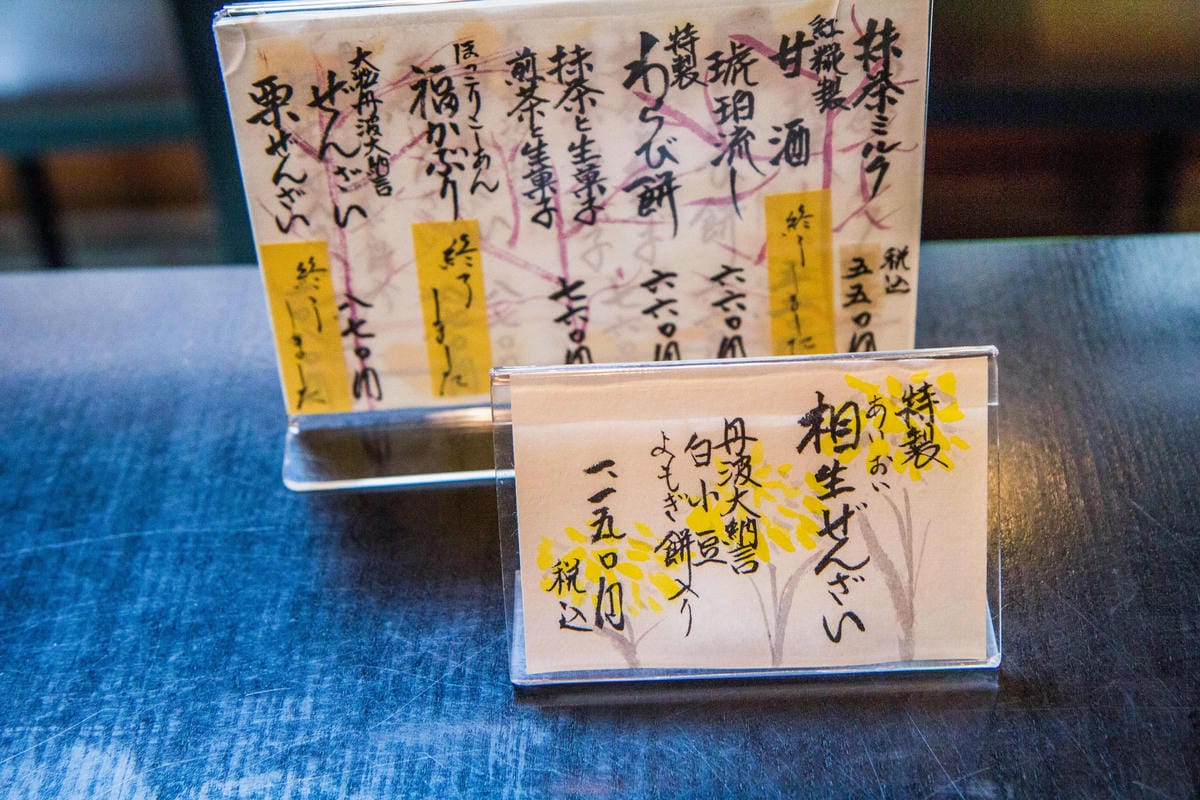 抹茶ミルク
税込
五五〇円
紅糀製
甘酒
終了しました
琥珀流し
六六〇円
特製
わらび餅
六六〇円
抹茶と生菓子
煎茶と生菓子
七六〇円
ほっこりこしあん
福かぶり
終了しました
大粒丹波大納言
ぜんざい
八七〇円
栗ぜんざい
終了しました
特製
あいおい
相生ぜんざい
丹波大納言
白小豆
よもぎ餅入り
一、一五〇円
税込